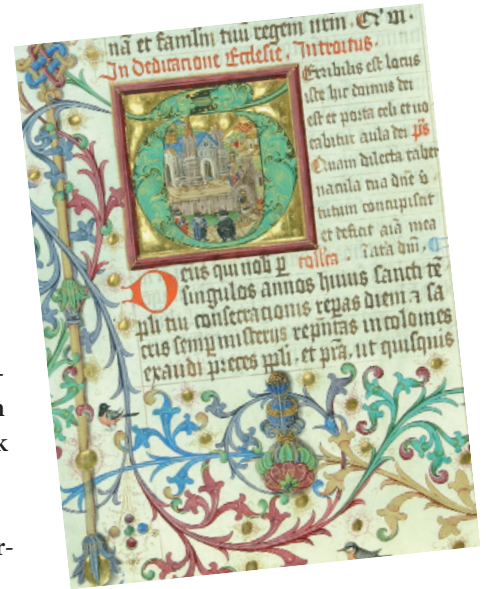 nã et famlm tuũ regem nrm. Et m.
In dedicatione Ecclesie. Introitus.
Erribilis est locus
iste hic domus dei
est et porta celi et uo
cabitur aula dei p̃s
Quam dilecta taber
nacula tua dñe v̾
tutum concupiscit
et deficit aĩa mea
collecta
Deus qui nob̾ p̱
singulos annos huius sancti tẽ
pli tui consecracionis repas diem ⁊ sa
cris semp̱ misterijs repñtas incolomes
exaudi preces ppli, et pr̃a, ut quisquis
n
k
r-